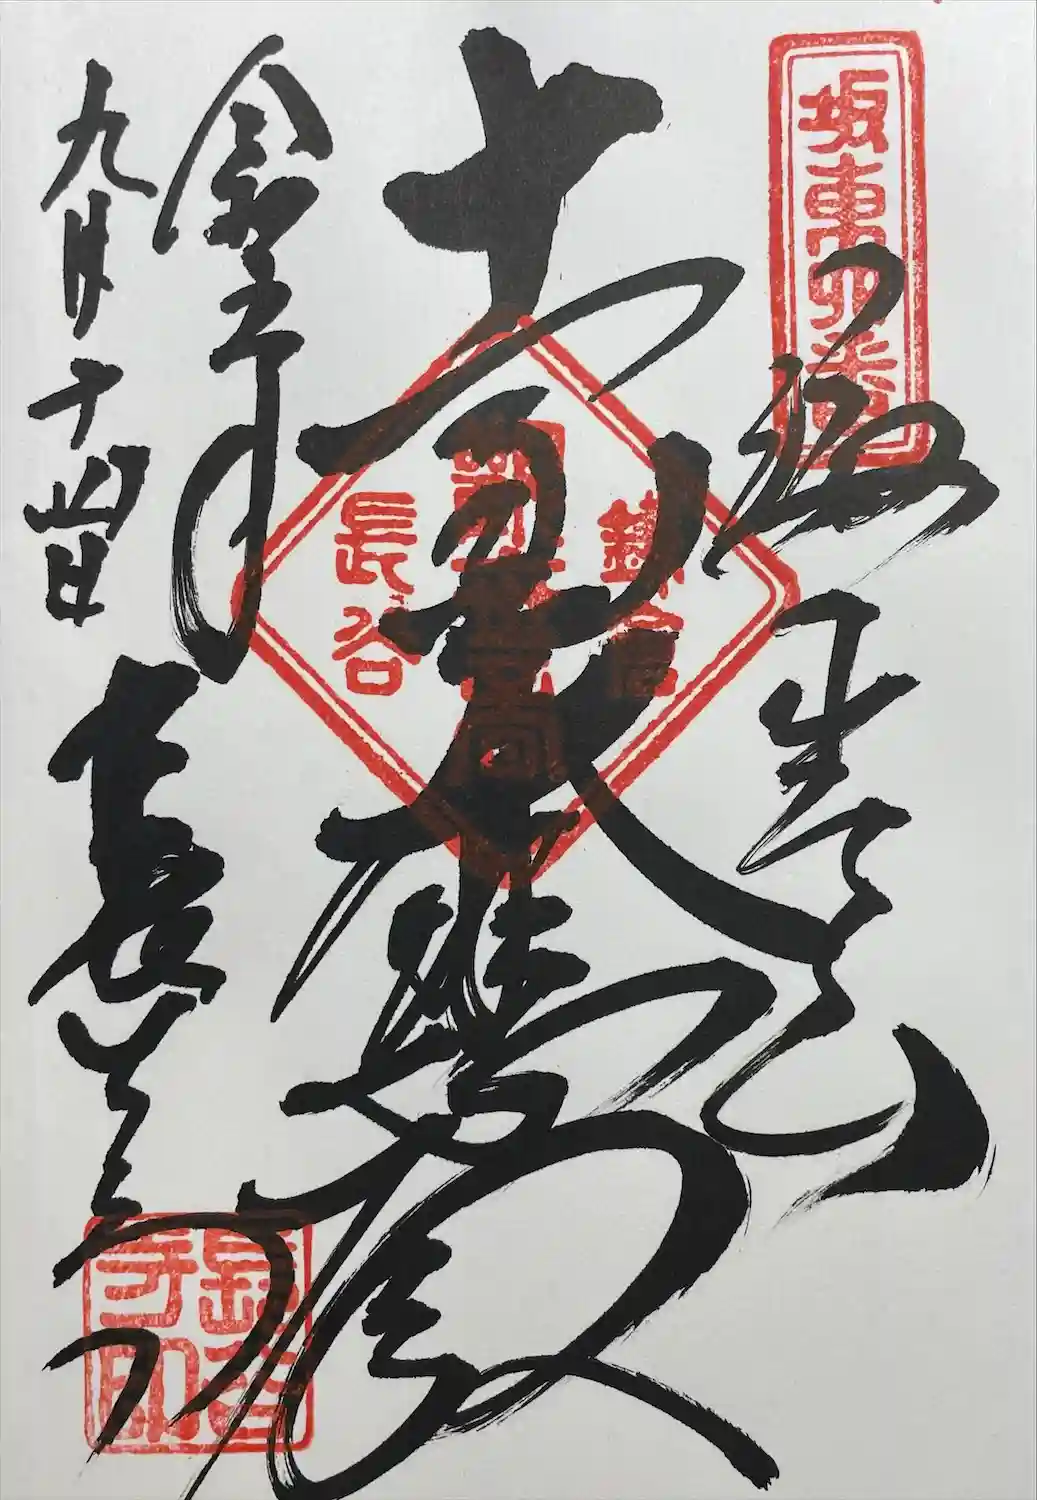 坂東四番
海光山
鎌倉
十一面大悲殿
長谷
九月十四日
長谷寺
長谷寺印